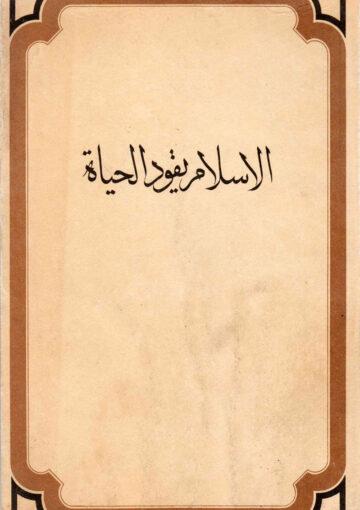 الاسلام يقود الحياة